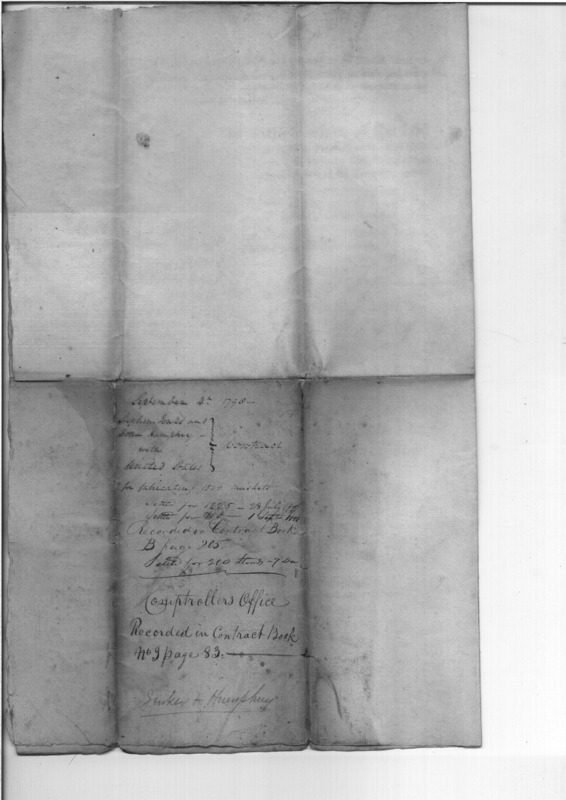 September 4th 1798 —
Stephen Jenks and
Hosea Humphrey —
with
United States
} Contract
for fabricating 1500 muskets
Settd for 1225 — 28 July
Settd for — 1 Septr
Recorded in Contract Book
B page 205
Settd for 200 Stands — 7
Comptrollers Office
Recorded in Contract Book
No 3 page 83.
Jenkes & Humphrey